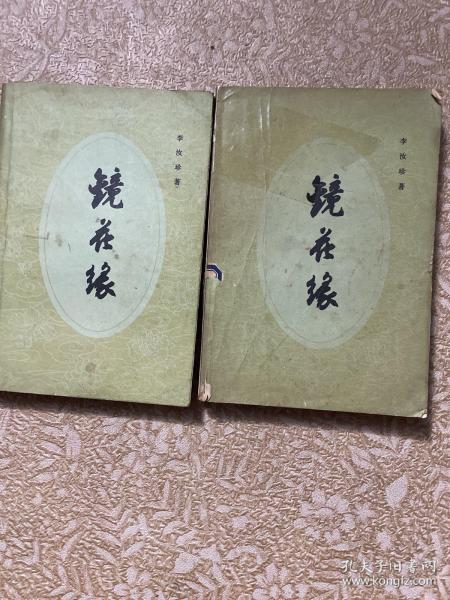 李汝珍著
镜花缘
李汝珍著
镜花缘
孔夫子旧书网
www.kongfz.com